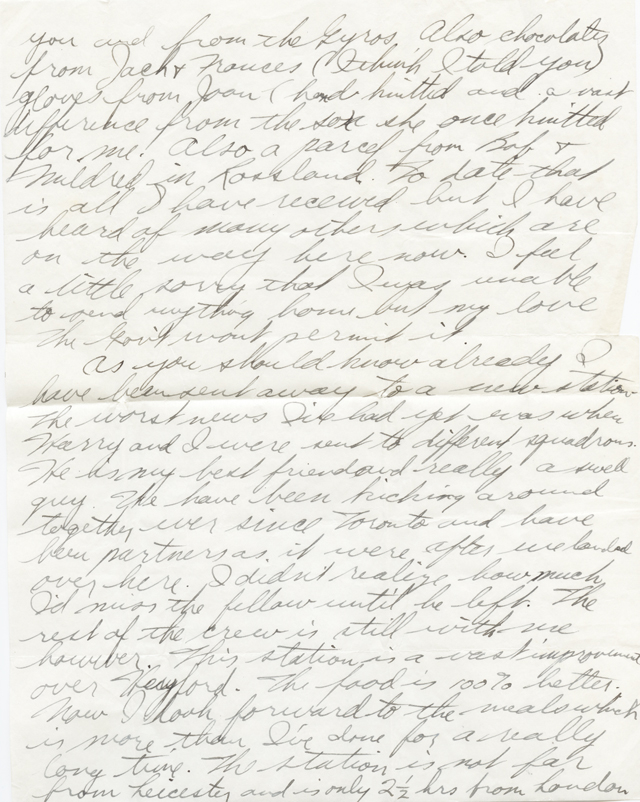 you and from the Gyros. Also chocolates
from Jack & Frances (I think I told you)
gloves from Joan (hand knitted and a vast
difference from the sox she once knitted
for me. Also a parcel from Bob &
Mildred in Rossland. To date that
is all I have received but I have
heard of many others which are
on the way here now. I feel
a little sorry that I was unable
to send anything home but my love
The Gov't won't permit it.
As you should know already I
have been sent away to a new station
The worst news I've had yet was when
Harry and I were sent to different squadrons.
He is my best friend and really a swell
guy. We have been kicking around
together ever since Toronto and have
been partners as it were, after we landed
over here. I didn't realize how much
I'd miss the fellow until he left. The
rest of the crew is still with me
however. This station is a vast improvement
over. The food is 100% better.
Now I look forward to the meals which
is more than I've done for a really
long time. The station is not far
from Leicester and is only 2½ hrs from London